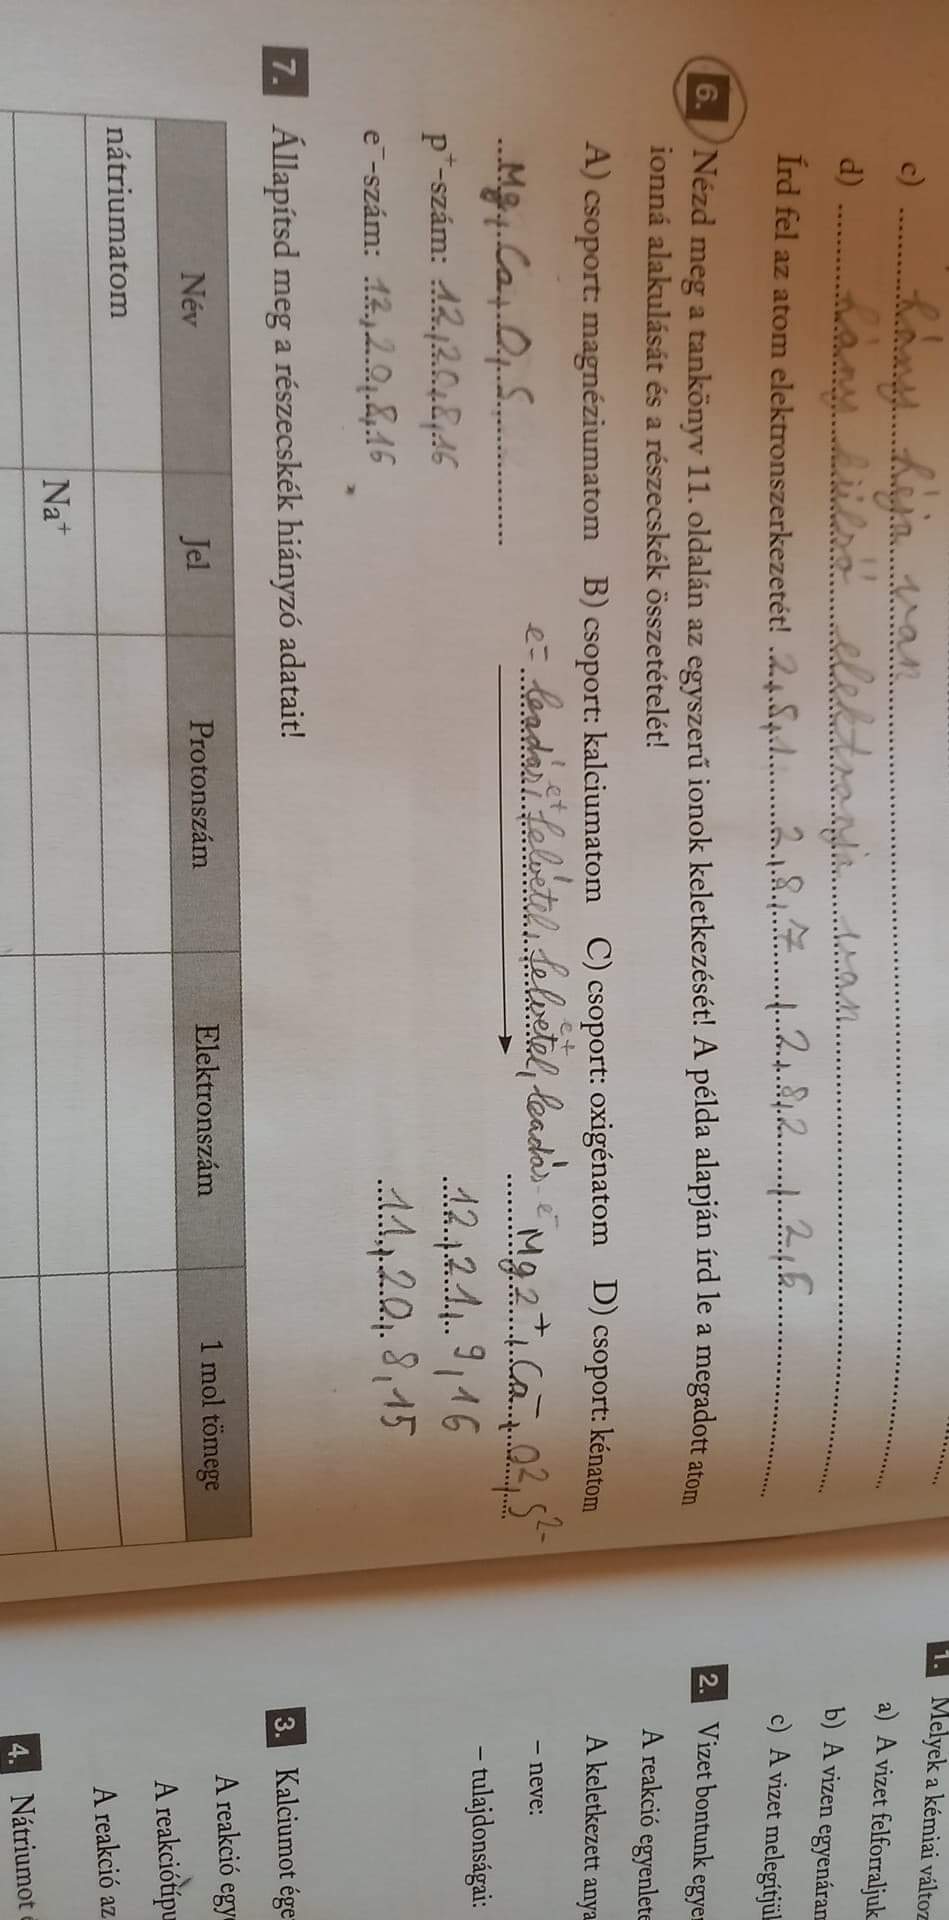 c) hány héja van
d) hány külső elektronja van
Írd fel az atom elektronszerkezetét! 2,8,1 2,8,7 , 2,8,2 , 2,6
6. Nézd meg a tankönyv 11. oldalán az egyszerű ionok keletkezését! A példa alapján írd le a megadott atom
ionná alakulását és a részecskék összetételét!
A) csoport: magnéziumatom B) csoport: kalciumatom C) csoport: oxigénatom D) csoport: kénatom
e⁻= leadás, e+ felvétel, felvétel e+, leadás e⁻
Mg, Ca, O, S Mg2+, Ca⁻, O2, S2-
p⁺-szám: 12,20,8,16 12,21,9,16
e⁻-szám: 12,20,8,16 11,20,8,15
7. Állapítsd meg a részecskék hiányzó adatait!
Név Jel Protonszám Elektronszám 1 mol tömege
nátriumatom
Na⁺
1. Melyek a kémiai változ
a) A vizet felforraljuk
b) A vizen egyenáram
c) A vizet melegítjük
2. Vizet bontunk egye
A reakció egyenlete
A keletkezett anya
– neve:
– tulajdonságai:
3. Kalciumot ége
A reakció egy
A reakciótípu
A reakció az
4. Nátriumot